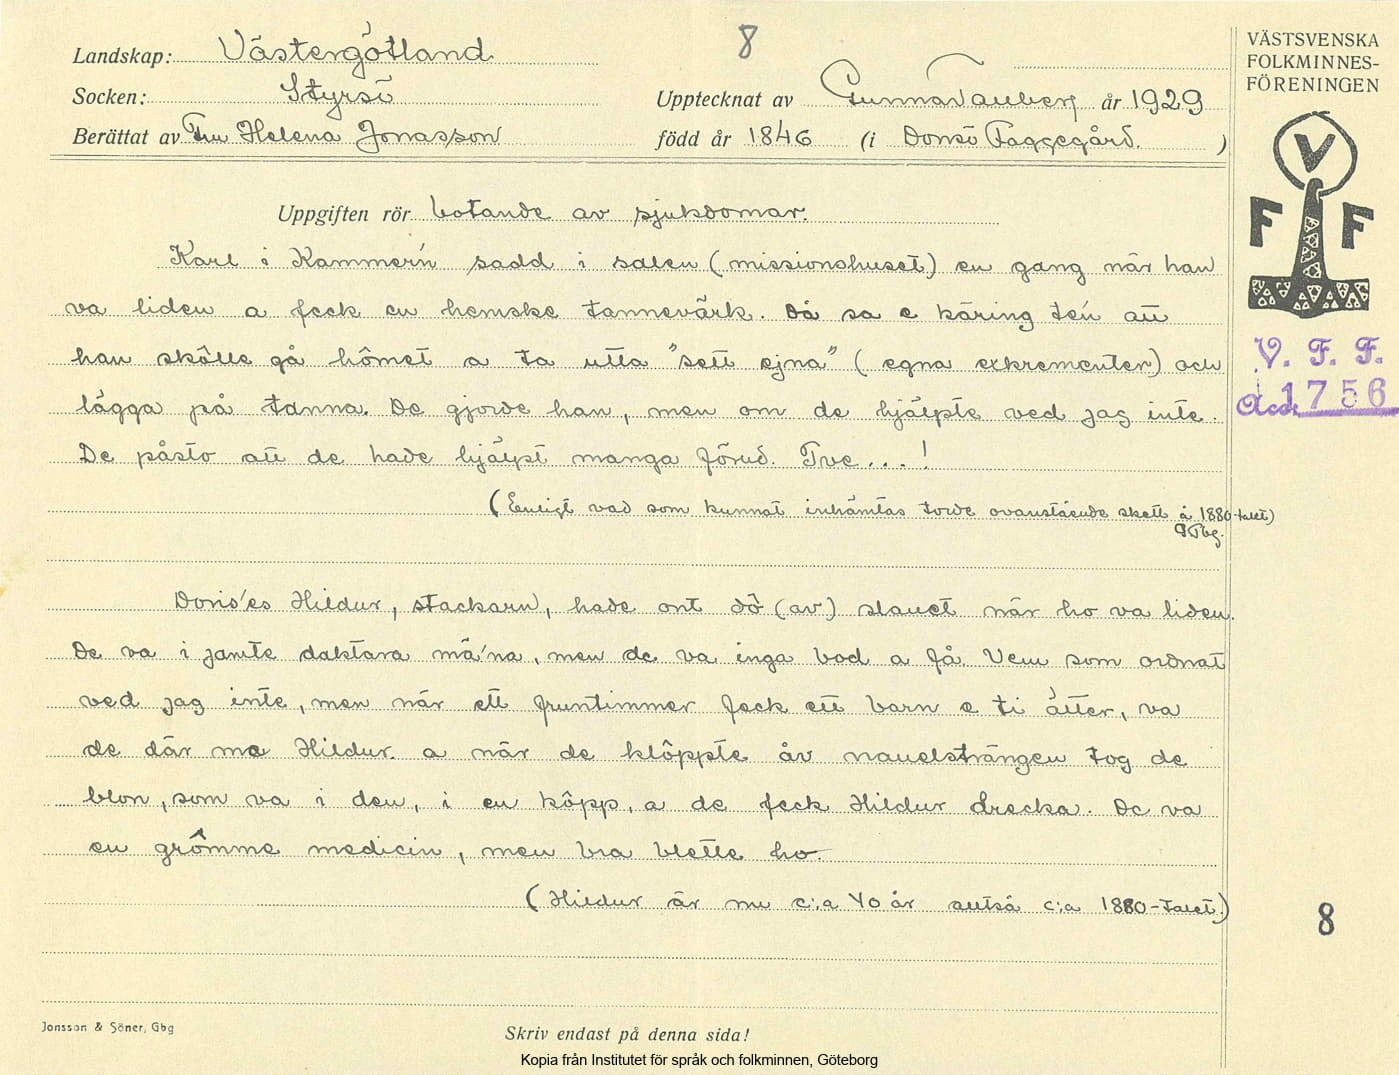 8
Landskap: Västergötland
Socken: Styrsö
Upptecknat av Gunnar Tauberg år 1929
Berättat av Fru Helena Jonasson
född år 1846 (i Donsö Faggegård.)
VÄSTSVENSKA
FOLKMINNES-
FÖRENINGEN
V
F F
V. F. F.
Acc. 1756
Uppgiften rör botande av sjukdomar.
Karl i Kammer'n sadd i salen (missionshuset) en gang när han
va liden a feck en hemske tannevärk. Då sa e käring te'n att
han skölle gå hômet a ta utta "sett ejna" (egna exkrementer) och
lägga på tanna. De gjorde han, men om de hjälpte ved jag inte.
De påsto att de hade hjälpt manga förud. Tve...!
(Enligt vad som kunnat inhämtas torde ovanstående skett å 1880-talet)
GTbg.
Doris'es Hildur, stackarn, hade ont dô (av) slauet när ho va liden.
De va i jamte daktara mä'na, men de va inga bod a få. Vem som ordnat
ved jag inte, men när ett fruntimmer feck ett barn e ti åtter, va
de där me Hildur. a när de klôppte åv navelsträngen tog de
blon, som va i den, i en kôpp, a de feck Hildur drecka. De va
en grômme medicin, men bra blette ho.
(Hildur är nu c:a 40 år alltså c:a 1880-talet.)
8
Jonsson & Söner, Gbg
Skriv endast på denna sida!
Kopia från Institutet för språk och folkminnen, Göteborg